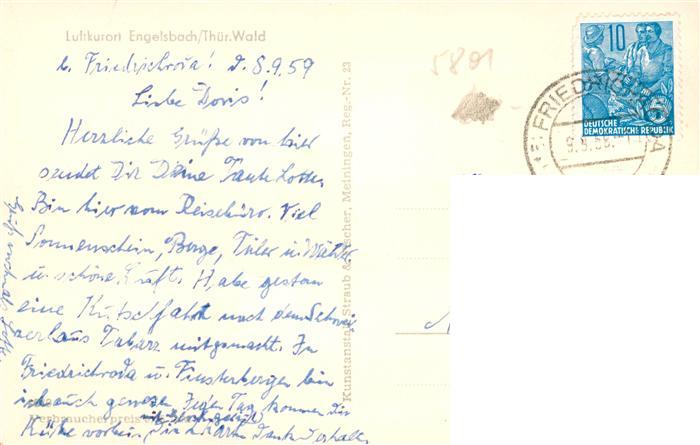 Luftkurort Engelsbach/Thür.Wald
b. Friedrichroda! d. 8.9.59
Liebe Doris!
Herzliche Grüße von hier
sendet Dir Deine Tante Lotte.
Bin hier vom Reisebüro. Viel
Sonnenschein, Berge, Täler u. Wälder
u. schöne Luft. Habe gestern
eine Kutschfahrt nach dem
aus Tabarz mitgemacht. In
Friedrichroda u. Finsterbergen bin
ich auch gewesen. Jeden Tag kommen die
Kühe vorbei.
Verbraucherpreis
Kunstanstalt Straub & Fischer, Meiningen, Reg.-Nr. 23
5801
10
DEUTSCHE
DEMOKRATISCHE REPUBLIK
5
FRIEDRICHRODA